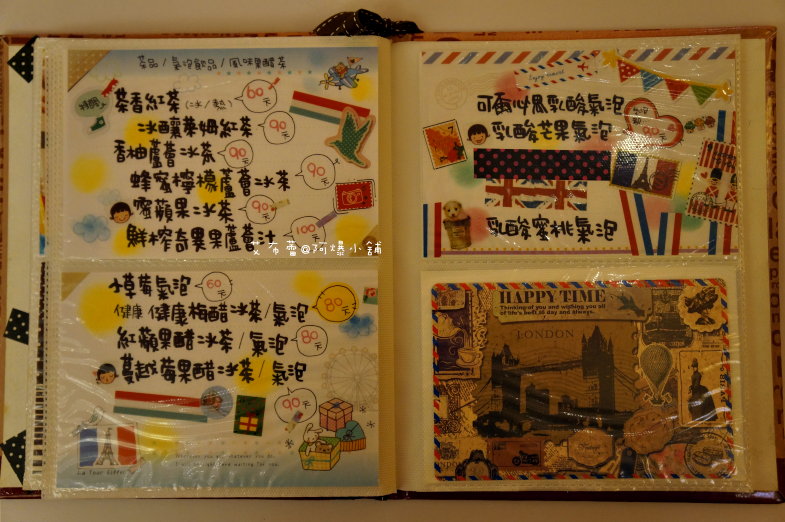 茶品/氣泡飲品/風味果醋茶
特調
茶香紅茶(冰/熱) 60元
冰釀萊姆紅茶 90元
香柚蘆薈冰茶 90元
蜂蜜檸檬蘆薈冰茶 90元
蜜蘋果冰茶 90元
鮮榨奇異果蘆薈汁 100元
艾布蕾@阿爆小舖
草莓氣泡 60元
健康 健康梅醋冰茶/氣泡 80元
紅蘋果醋冰茶/氣泡 80元
蔓越莓果醋冰茶/氣泡 90元
La Tour Eiffel
可爾必思乳酸氣泡
乳酸芒果氣泡 90元
乳酸蜜桃氣泡
HAPPY TIME
Thinking of you and wishing you all
of life's best to day and always.
LONDON